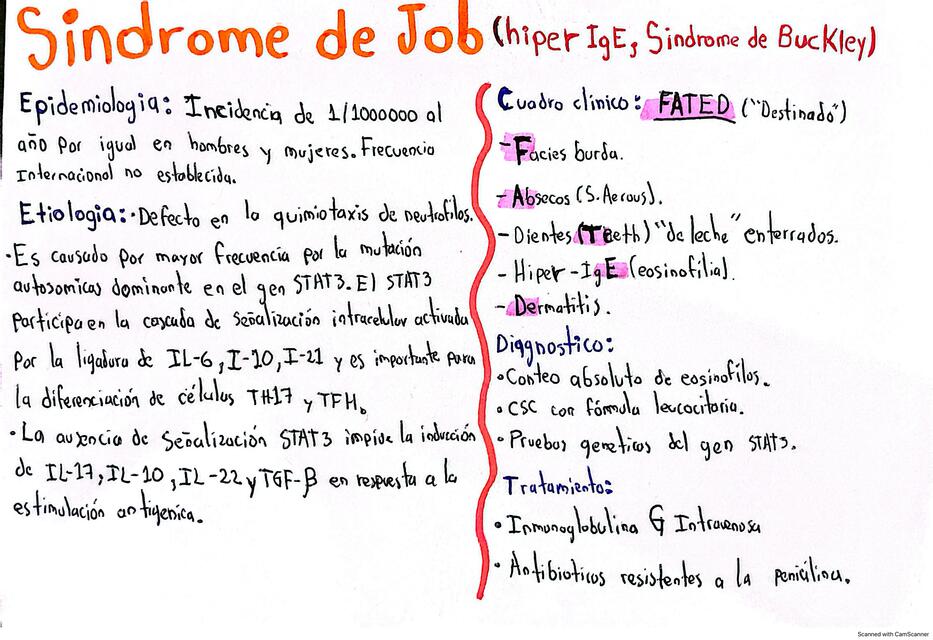 Sindrome de Job (hiper IgE, Sindrome de Buckley)
Epidemiologia: Incidencia de 1/1000000 al
año por igual en hombres y mujeres. Frecuencia
Internacional no establecida.
Etiologia: · Defecto en la quimiotaxis de neutrofilos.
· Es causado por mayor frecuencia por la mutación
autosomicas dominante en el gen STAT3. El STAT3
participa en la cascada de señalización intracelular activada
por la ligadura de IL-6, I-10, I-21 y es importante para
la diferenciación de células TH17 y TFH.
· La ausencia de señalización STAT3 impide la inducción
de IL-17, IL-10, IL-22 y TGF-β en respuesta a la
estimulación antigenica.
Cuadro clinico: FATED ("Destinado")
- Facies burda.
- Absecos (S. Aerous).
- Dientes (Teeth) "de leche" enterrados.
- Hiper-IgE (eosinofilia).
- Dermatitis.
Diagnostico:
· Conteo absoluto de eosinofilos.
· CSC con fórmula leucocitoria.
· Pruebas geneticas del gen STAT3.
Tratamiento:
· Inmunoglobulina G Intravenosa
· Antibioticos resistentes a la penicilina.
Scanned with CamScanner